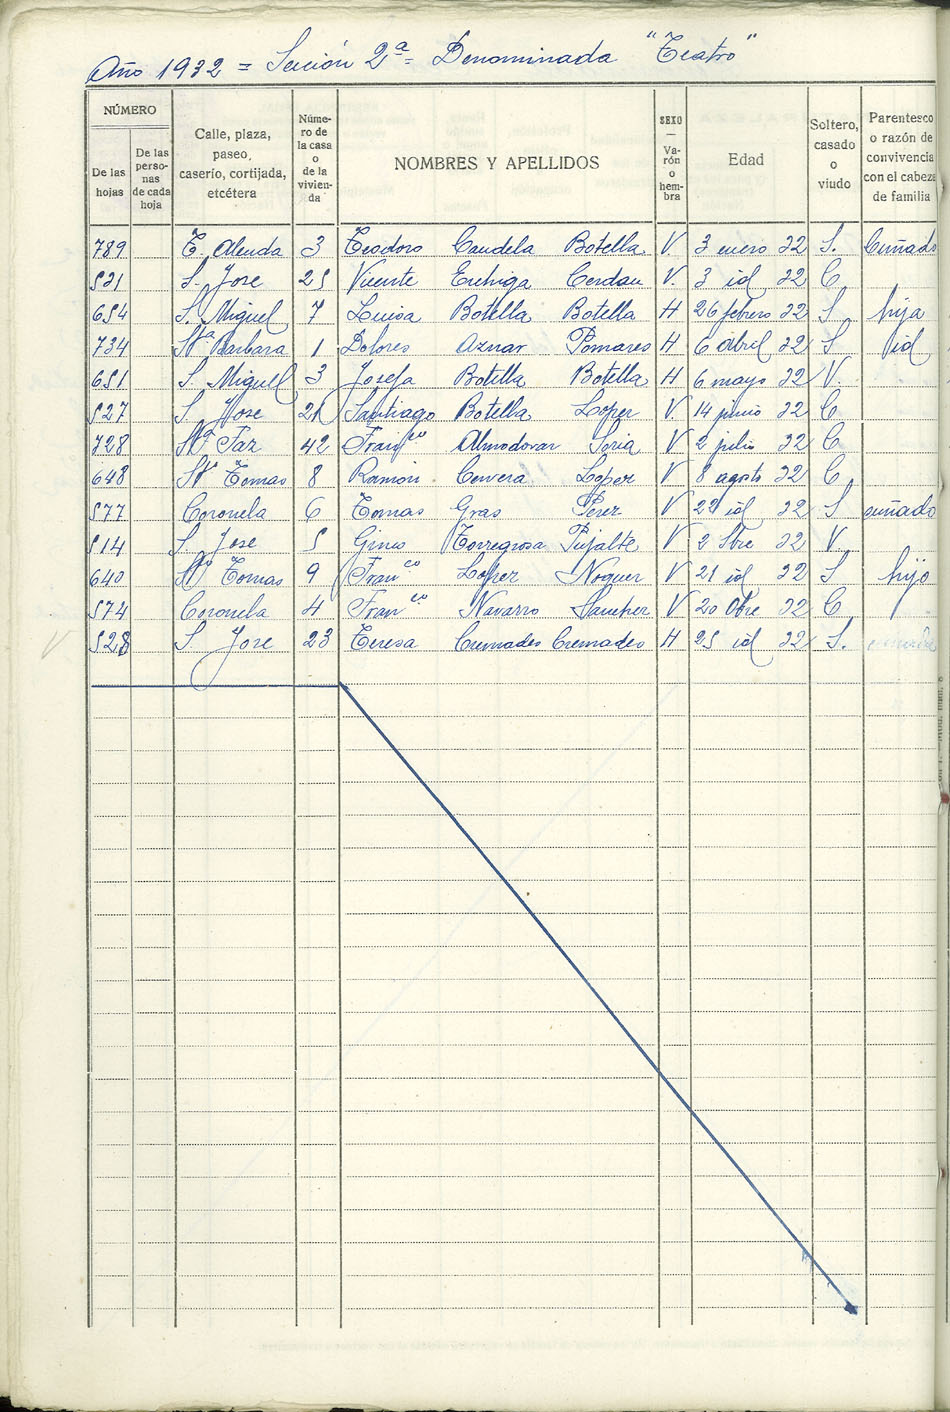 Año 1932 = Seción 2ª = Denominada "Teatro"
NÚMERO
De las hojas
De las perso-nas de cada hoja
Calle, plaza, paseo, caserío, cortijada, etcétera
Núme-ro de la casa o de la vivien-da
NOMBRES Y APELLIDOS
SEXO — Va-rón o hem-bra
Edad
Soltero, casado o viudo
Parentesco o razón de convivencia con el cabeza de familia
789 T. Alenda 3 Teodoro Candela Botella V. 3 enero 32 S. Cuñado
521 S. Jose 25 Vicente Cerdan V. 3 id 32 C
654 S. Miguel 7 Luisa Botella Botella H 26 febrero 32 S. hija
734 Stª Barbara 1 Dolores Aznar Pomares H 6 abril 32 S id
651 S. Miguel 3 Josefa Botella Botella H 6 mayo 32 V.
527 S. Jose 21 Santiago Botella Lopez V. 14 junio 32 C
728 Stª Faz 42 Franco Almodovar Soria V 2 julio 32 C
648 Stº Tomas 8 Ramon Cervera Lopez V 8 agosto 32 C
577 Coronela 6 Tomas Gras Perez V 22 id 32 S cuñado
514 S. Jose 5 Gines Torregrosa Pujalte V 2 Sbre 32 V.
640 Stº Tomas 9 Franco Lopez Noguer V 21 id 32 S hijo
574 Coronela 4 Franco Navarro Sanchez V 20 Obre 32 C
528 S. Jose 23 Teresa Cremades Cremades H 25 id 32 S.